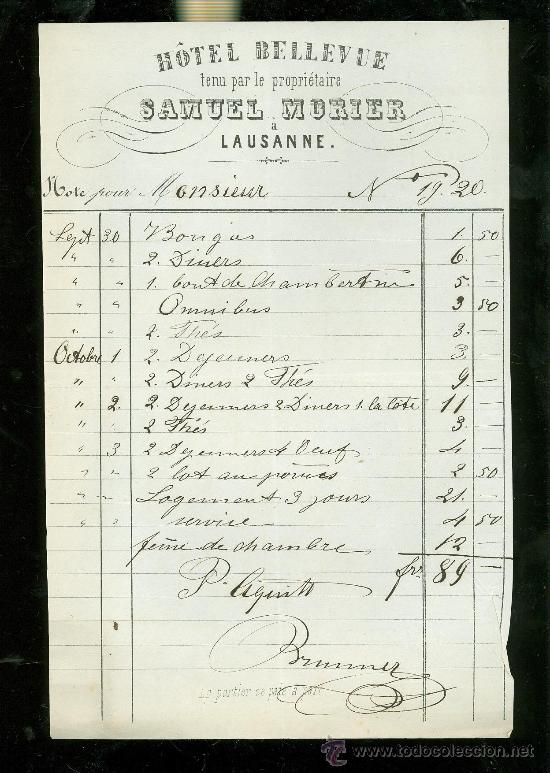 HÔTEL BELLEVUE
tenu par le propriétaire
SAMUEL MORIER
a
LAUSANNE.
Note pour Monsieur No 19. 20.
Sept 30 Bougies 1. 50
" " 2. Diners 6. —
" " 1. bout de Chambertin 5. —
" " Omnibus 3 50
" " 2. Thés 3. —
Octobre 1 2. Dejeuners 3.
" " 2. Diners 2 Thés 9 —
" 2. 2 Dejeuners 2 Diners 1 11 —
" " 2 Thés 3.
" 3 2 Dejeuners 4 Oeuf 4 —
" " 2 2 50
" " Logement 3 jours 21. —
" " service 4 50
feme de chambre 12 —
frs. 89 —
P. Aquitt
Brunner
Le portier se paie a part
todocoleccion
www.todocoleccion.net